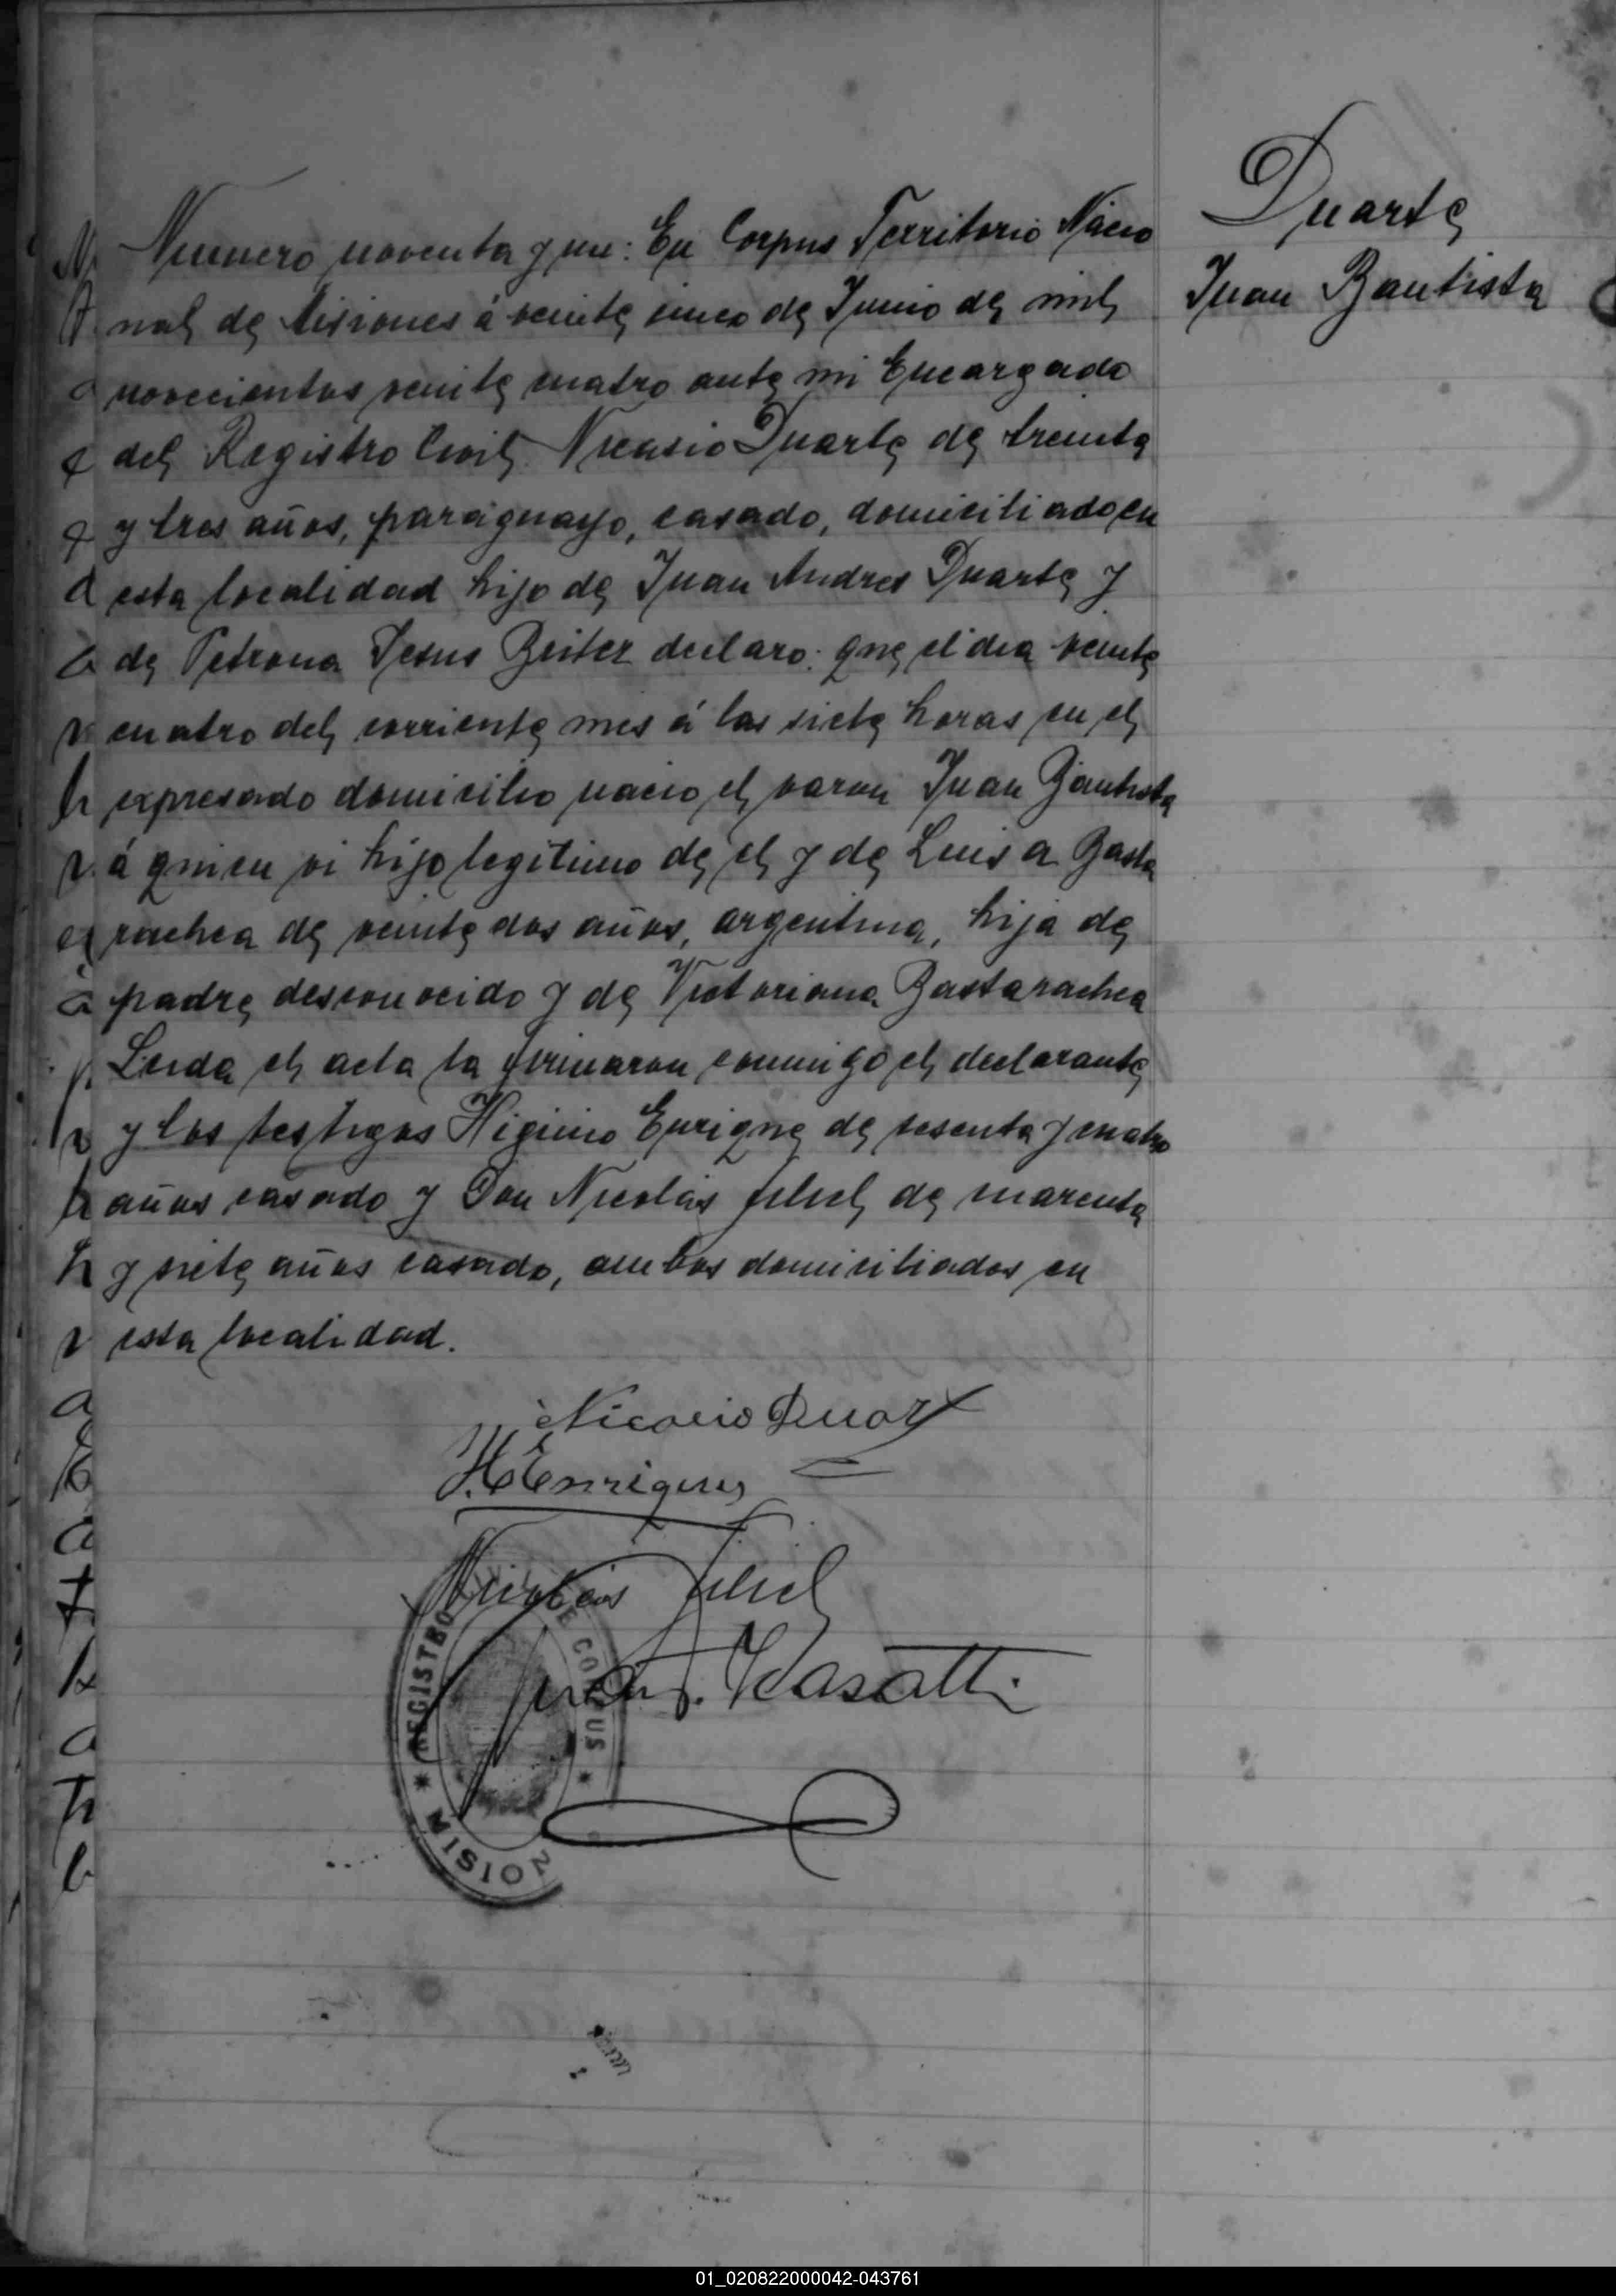 Duarte
Juan Bautista
Numero noventa y un: En Corpus Territorio Nacio
nal de Misiones á veinte cinco de Junio de mil
novecientos veinte cuatro ante mi Encargado
del Registro Civil Nicasio Duarte de treinta
y tres años, paraguayo, casado, domiciliado en
esta localidad hijo de Juan Andres Duarte y
de Petrona Jesus declaro: que el dia veinte
cuatro del corriente mes á las siete horas en el
expresado domicilio nacio el varon Juan Bautista
á quien vi hijo legitimo de el y de Luisa Basta
rachea de veinte dos años, argentina, hija de
padre desconocido y de Victoriana Bastarachea
Leida el acta la firmaron conmigo el declarante
y los testigos Higinio Enrique de sesenta y cuatro
años casado y Don Nicolás de cuarenta
y siete años casado, ambos domiciliados en
esta localidad.
Nicacio Duart
H. Enriques
Nicolás
Casatti
REGISTRO DE CORPUS * MISION *
01_020822000042-043761